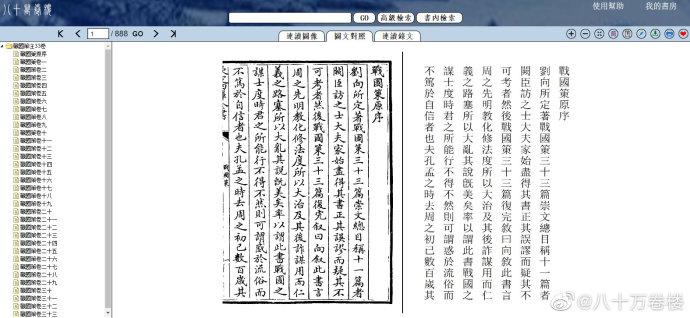 八十萬卷樓
使用幫助
我的書房
GO
高級檢索
書內檢索
1 / 888 GO
連續圖像
圖文對照
連續錄文
戰國策注33卷
戰國策原序
戰國策卷一
戰國策卷二
戰國策卷三
戰國策卷四
戰國策卷五
戰國策卷六
戰國策卷七
戰國策卷八
戰國策卷九
戰國策卷十
戰國策卷十一
戰國策卷十二
戰國策卷十三
戰國策卷十四
戰國策卷十五
戰國策卷十六
戰國策卷十七
戰國策卷十八
戰國策卷十九
戰國策卷二十
戰國策卷二十一
戰國策卷二十二
戰國策卷二十三
戰國策卷二十四
戰國策卷二十五
戰國策卷二十六
戰國策卷二十七
戰國策卷二十八
戰國策卷二十九
戰國策卷三十
戰國策卷三十一
戰國策卷三十二
戰國策卷三十三
戰國策原序
劉向所定著戰國策三十三篇崇文總目稱十一篇者
闕臣訪之士大夫家始盡得其書正其誤謬而疑其不
可考者然後戰國策三十三篇復完叙曰向叙此書言
周之先明教化修法度所以大治及其後詐謀用而仁
義之路塞所以大亂其說旣美矣率以謂此書戰國之
謀士度時君之所能行不得不然則可謂惑於流俗而
不篤於自信者也夫孔孟之時去周之初已數百歲其
戰國策
戰國策原序
劉向所定著戰國策三十三篇崇文總目稱十一篇者
闕臣訪之士大夫家始盡得其書正其誤謬而疑其不
可考者然後戰國策三十三篇復完敘曰向敘此書言
周之先明教化修法度所以大治及其後詐謀用而仁
義之路塞所以大亂其說旣美矣率以謂此書戰國之
謀士度時君之所能行不得不然則可謂惑於流俗而
不篤於自信者也夫孔孟之時去周之初已數百歲其
@八十万卷楼